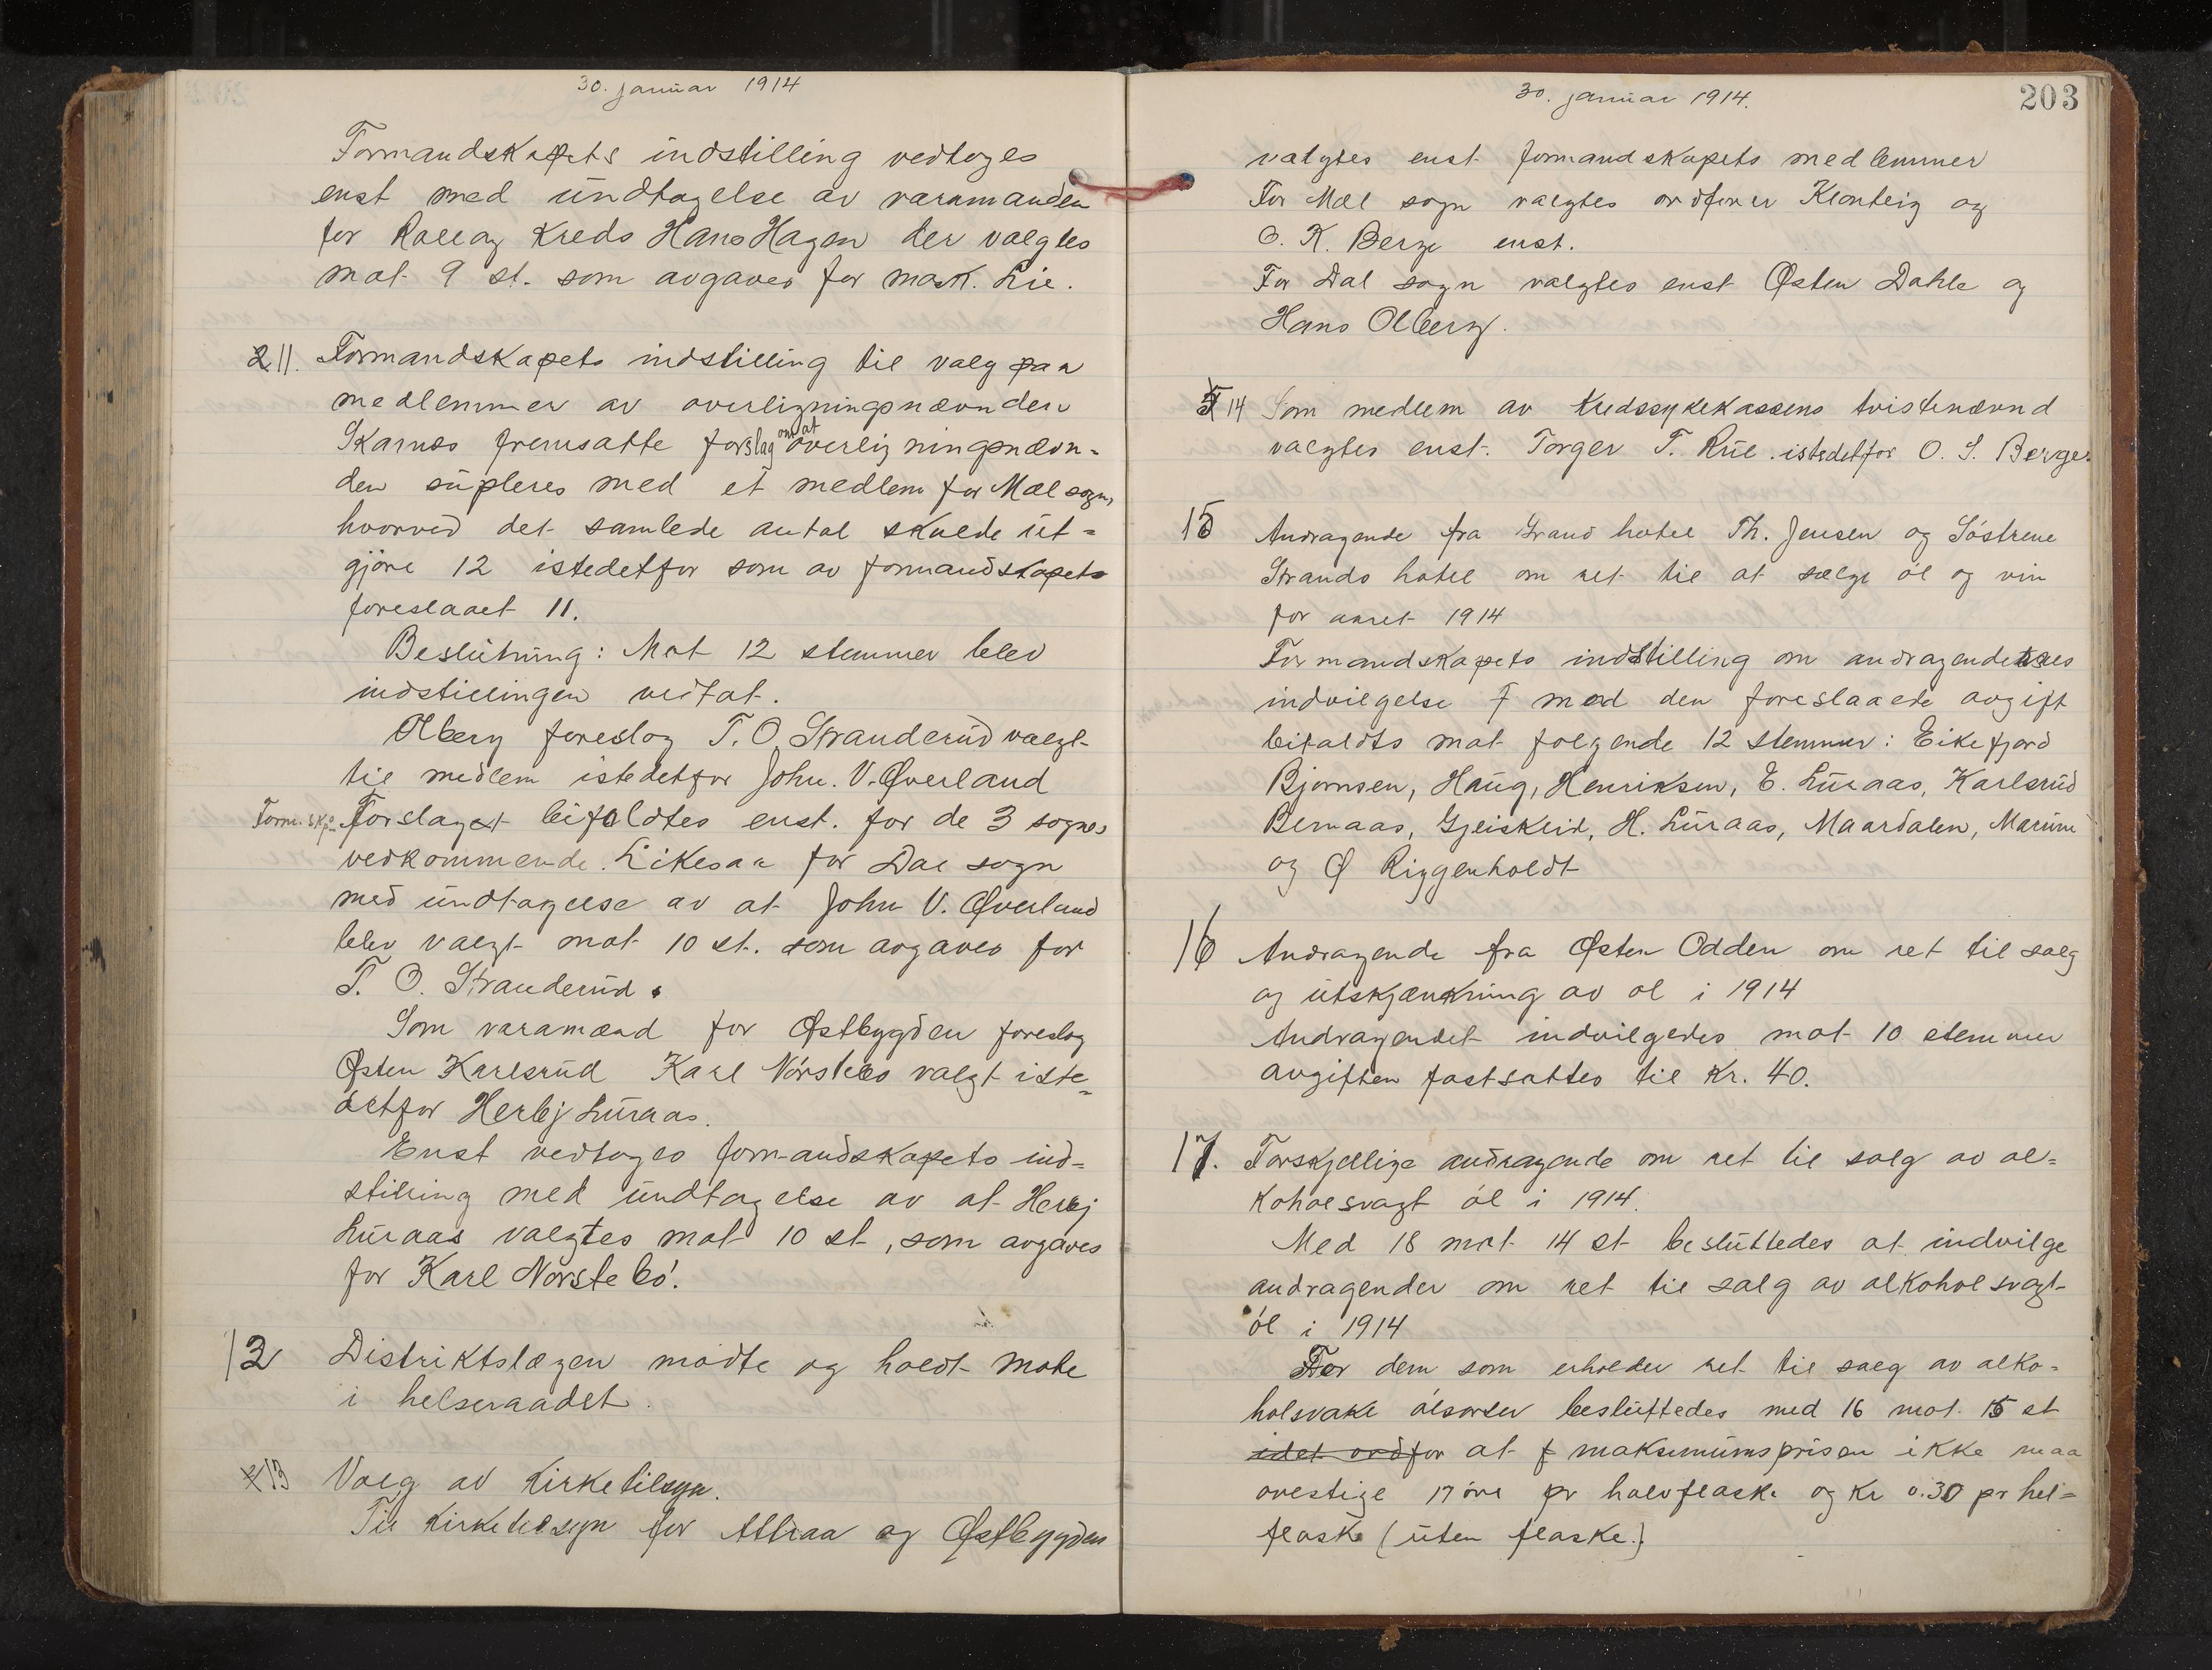 30. januar 1914
Formandskapets indstilling vedtoges
enst med undtagelse av varamanden
for Rollag Kreds Hans Hagen der valgtes
mot 9 st. som avgaves for mask. Lie.
11. Formandskapets indstilling til valg paa
medlemmer av overligningsnævnden
Skarnes fremsatte forslag om at overligningsnævn=
den supleres med et medlem for Mæl sogn,
hvorved det samlede antal skulde ut=
gjøre 12 istedetfor som av formandskapets
foreslaaet 11.
Beslutning: Mot 12 stemmer blev
indstillingen vedtat.
Olberg foreslog T. O. Stranderud valgt
til medlem istedetfor John. V. Øverland
Form.skps Forslaget bifaldtes enst. for de 3 sognes
vedkommende. Likesaa for Dal sogn
med undtagelse av at John V. Øverland
blev valgt mot 10 st. som avgaves for
T. O. Stranderud.
Som varamænd for Østbygden foreslog
Østen Karlsrud Karl Nørstebø valgt iste=
detfor Herbj Luraas.
Enst vedtoges formandskapets ind=
stilling med undtagelse av at Herbj
Luraas valgtes mot 10 st, som avgaves
for Karl Nørstebø.
12 Distriktslægen mødte og holdt møte
i helseraadet.
13 Valg av Kirketilsyn.
Til Kirketilsyn for Attraa og Østbygden
30. januar 1914.
203
valgtes enst formandskapets medlemmer
For Mæl sogn valgtes ordfører Klonteig og
O. K. Berge enst.
For Dal sogn valgtes enst Østen Dahle og
Hans Olberg.
14 Som medlem av Kredssykekassens tvistenævnd
valgtes enst. Torger T. Rue. istedetfor O. S. Berge.
15 Andragende fra Grand hotel Th. Jensen og Søstrene
Strands hotel om ret til at sælge øl og vin
for aaret 1914
Formandskapets indstilling om andragendernes
indvilgelse med den foreslaaede avgift
bifaldts mot følgende 12 stemmer: Eikefjord
Bjørnsen, Haug, Henriksen, E. Luraas, Karlsrud
Bernaas, Gjeiskrid, H. Luraas, Maardalen, Marum
og Ø Riggenholdt
16 Andragende fra Østen Odden om ret til salg
og utskjænkning av øl i 1914
Andragendet indvilgedes mot 10 stemmer
avgiften fastsattes til Kr. 40.
17. Forskjellige andragende om ret til salg av al=
koholsvagt øl i 1914.
Med 18 mot 14 st besluttedes at indvilge
andragender om ret til salg av alkoholsvagt
øl i 1914
For dem som erholder ret til salg av alko=
holsvake ølsorter besluttedes med 16 mot 15 st
idet ordfor at f maksimumsprisen ikke maa
overstige 17 øre pr halvflaske og Kr 0.30 pr hel=
flaske (uten flaske.)